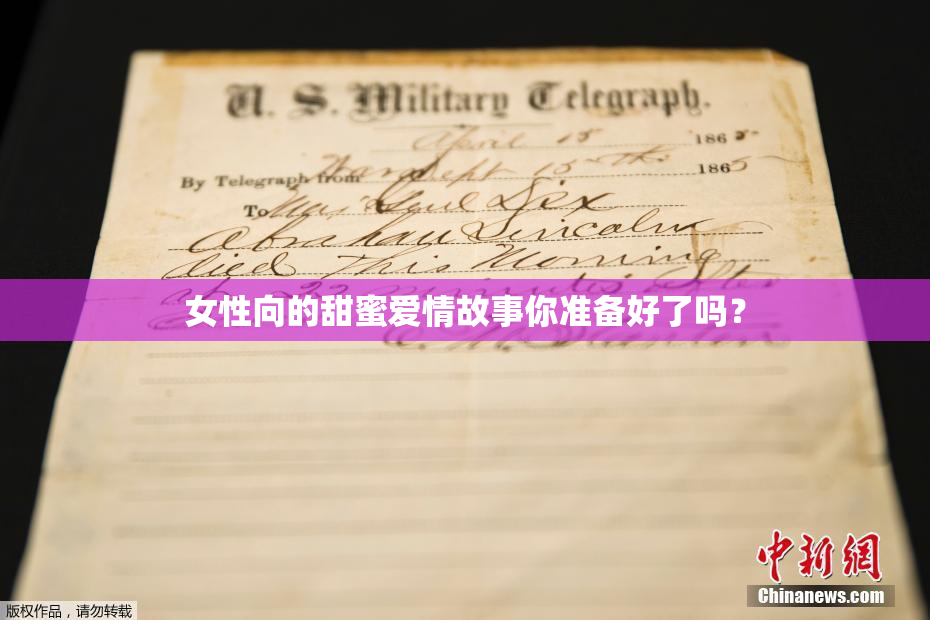 U. S. Military Telegraph.
April 15 1865
By Telegraph from War Dept 15th 1865
To Maj Genl Dix
Abraham Lincoln
died This Morning
at 22 minutes after
女性向的甜蜜爱情故事你准备好了吗？
中新网
Chinanews.com
版权作品，请勿转载